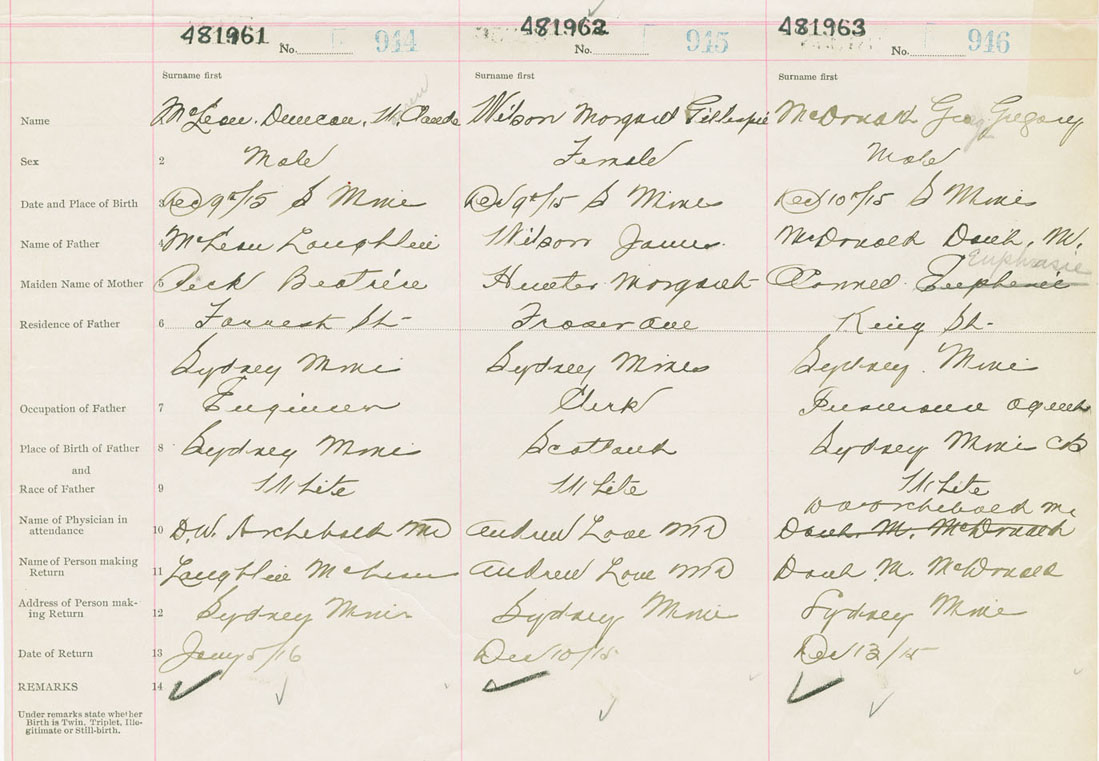 481961 481962 481963
No. 944 No. 945 No. 946
Surname first Surname first Surname first
Name McLean, Duncan, W. Claude Wilson Margaret Gillespie McDonald Gregory
Sex 2 Male Female Male
Date and Place of Birth 3 Dec 9th/15 S Mines Dec 9th/15 S Mines Dec 10th/15 S Mines
Name of Father McLean Laughlin Wilson James. McDonald Danl, M.
Euphrasia
Maiden Name of Mother 5 Peck Beatrice Hunter Margaret Euphemia
Residence of Father 6 Forrest St Fraser Ave King St
Sydney Mines Sydney Mines Sydney Mines
Occupation of Father 7 Engineer Clerk Insurance Agent
Place of Birth of Father 8 Sydney Mines Scotland Sydney Mines CB
and
Race of Father 9 White White White
Archebald Md
Name of Physician in
attendance 10 D.W. Archebald Md Andrew Love MD Danl. M. McDonald
Name of Person making
Return 11 Laughlin McLean Andrew Love MD Danl M. McDonald
Address of Person mak-
ing Return 12 Sydney Mines Sydney Mines Sydney Mines
Date of Return 13 Jany 5/16 Dec 10/15 Dec 13/15
REMARKS 14
Under remarks state whether
Birth is Twin, Triplet, Ille-
gitimate or Still-birth.